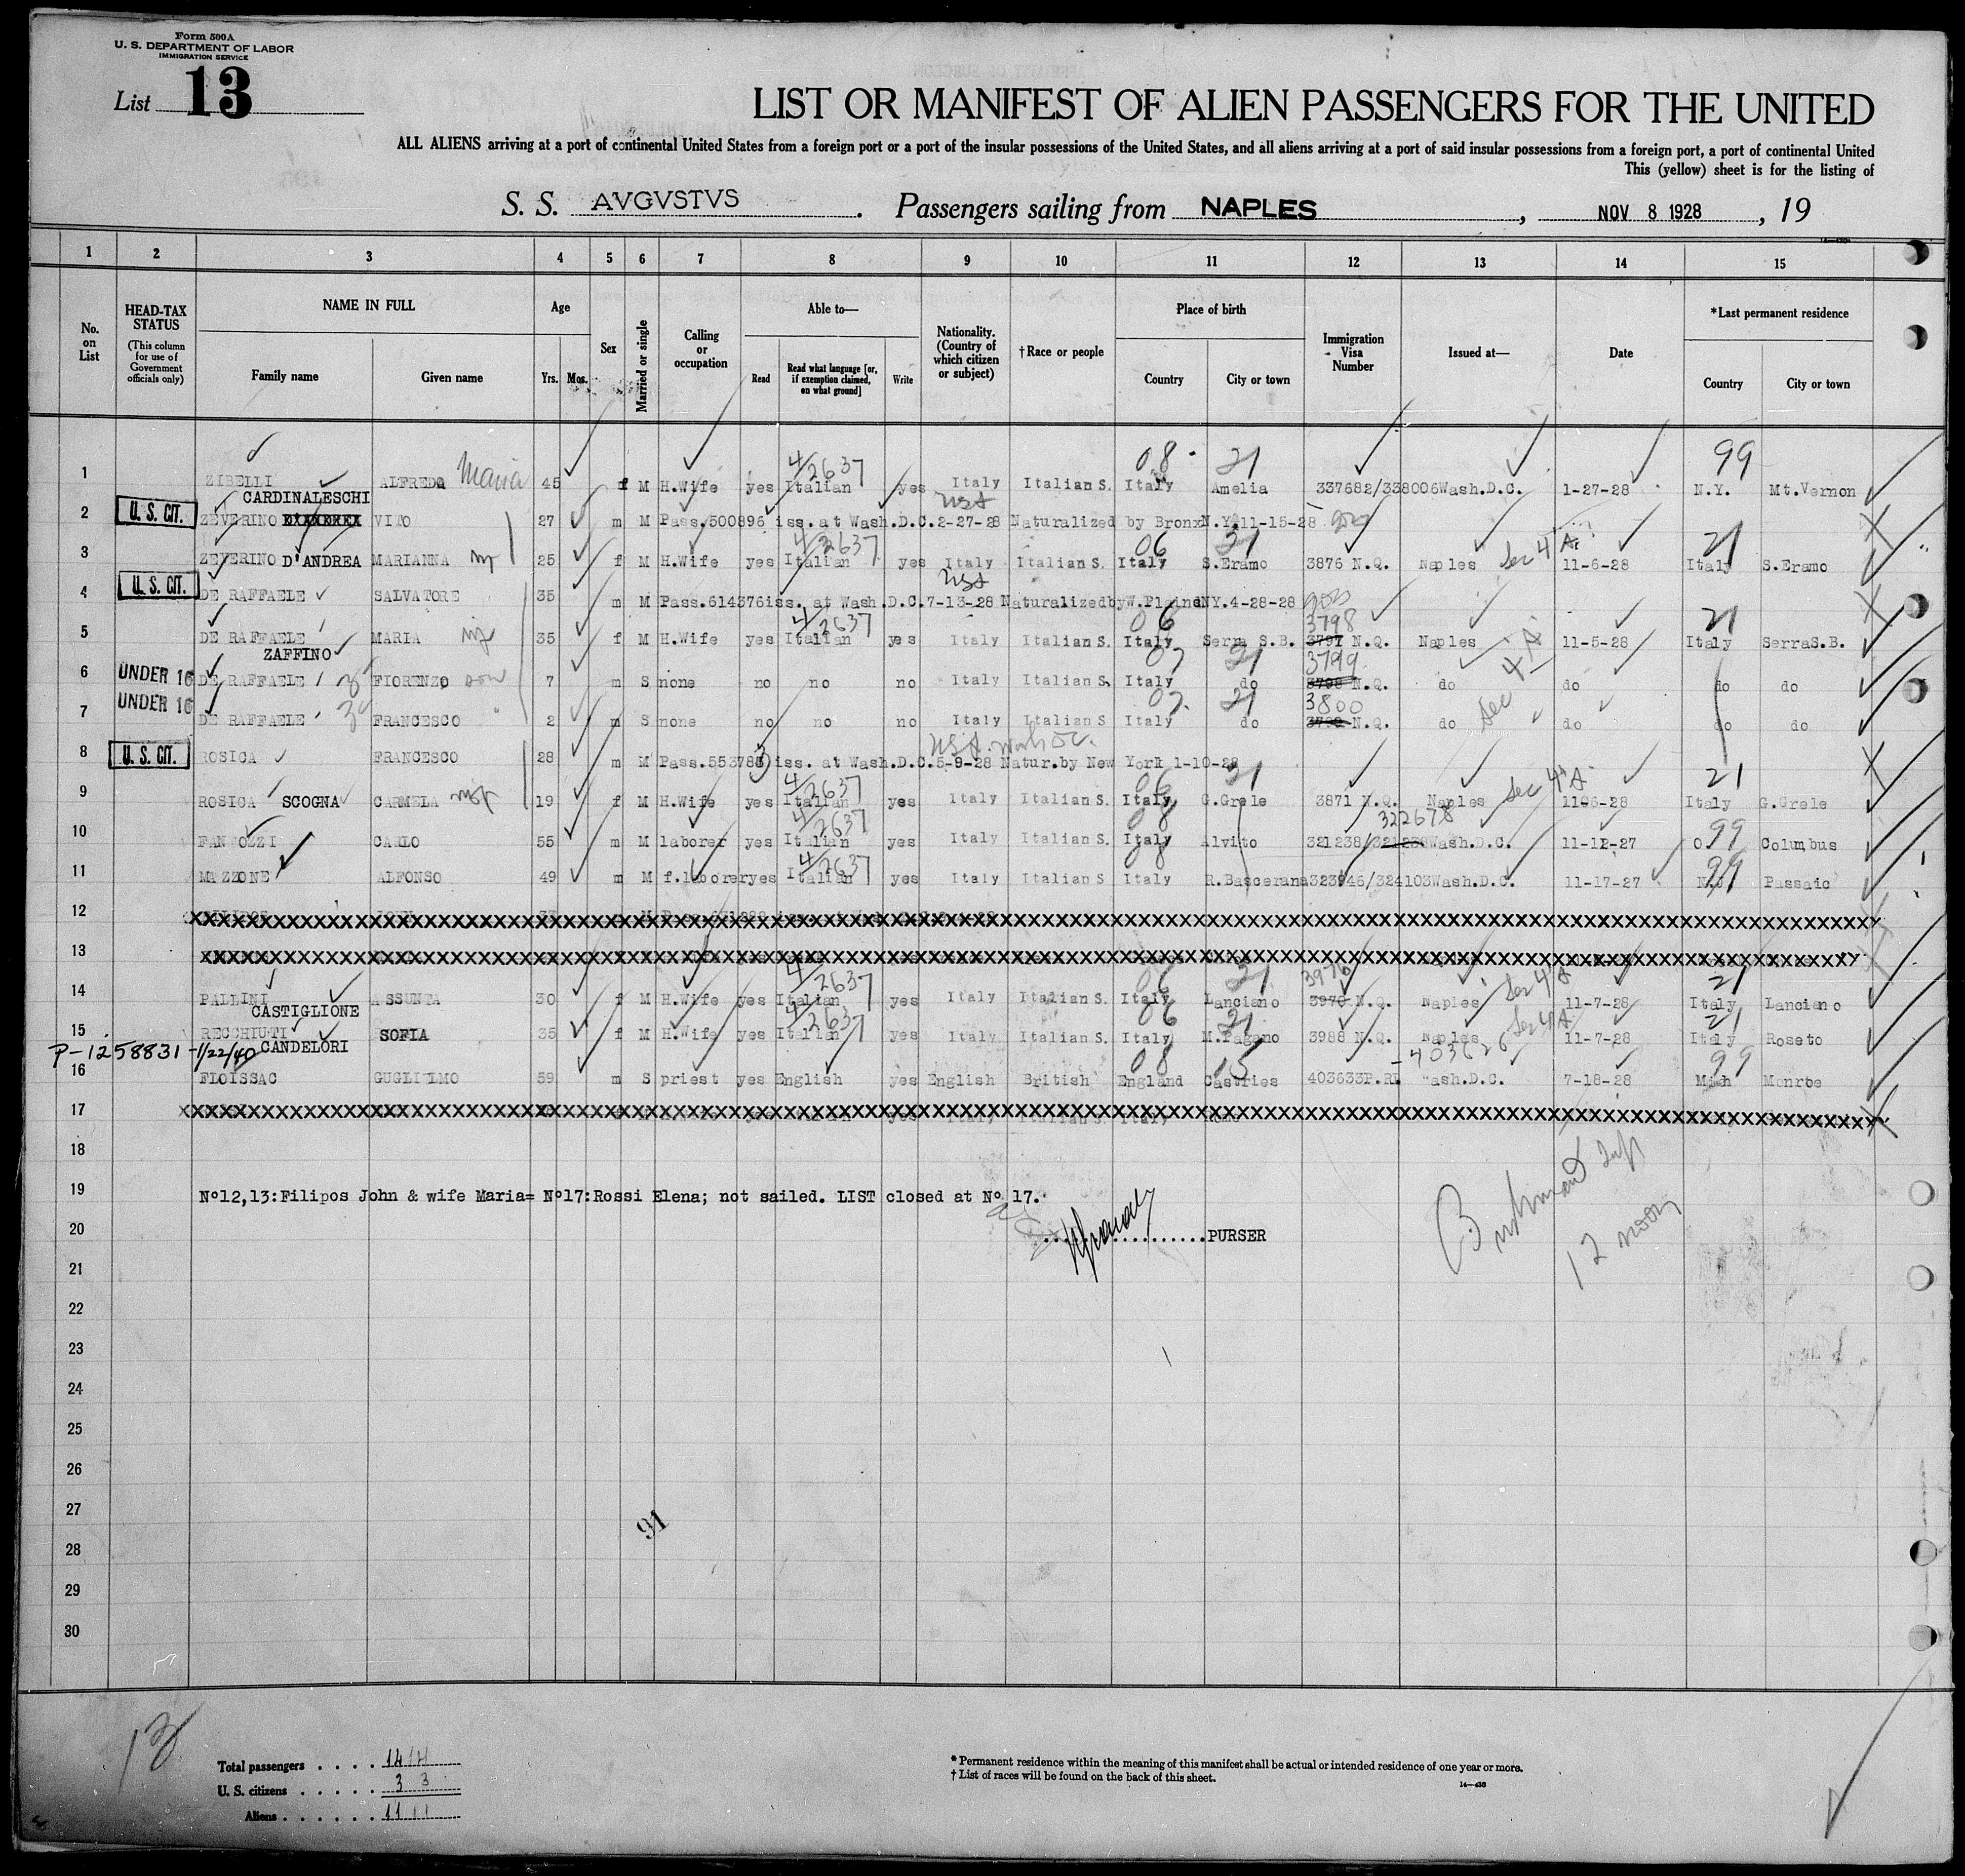 Form 500A
U. S. DEPARTMENT OF LABOR
IMMIGRATION SERVICE
List 13
LIST OR MANIFEST OF ALIEN PASSENGERS FOR THE UNITED
ALL ALIENS arriving at a port of continental United States from a foreign port or a port of the insular possessions of the United States, and all aliens arriving at a port of said insular possessions from a foreign port, a port of continental United
This (yellow) sheet is for the listing of
S. S. AVGVSTVS . Passengers sailing from NAPLES , NOV 8 1928 , 19
1 2 3 4 5 6 7 8 9 10 11 12 13 14 15
No. on List
HEAD-TAX STATUS
(This column for use of Government officials only)
NAME IN FULL
Family name
Given name
Age
Yrs. Mos.
Sex
Married or single
Calling or occupation
Able to—
Read
Read what language [or, if exemption claimed, on what ground]
Write
Nationality. (Country of which citizen or subject)
†Race or people
Place of birth
Country
City or town
Immigration Visa Number
Issued at—
Date
*Last permanent residence
Country
City or town
4/2637 08 21 99
1 ZIBELLI CARDINALESCHI ALFREDA Maria 45 f M H.Wife yes Italian yes Italy Italian S. Italy Amelia 337682/338006 Wash.D.C. 1-27-28 N.Y. Mt.Vernon
USA
2 U. S. CIT. ZEVERINO VITO 27 m M Pass.500896 iss. at Wash.D.C.2-27-28 Naturalized by Bronx N.Y.11-15-28
4/2637 06 21 Sec 4 A. 21
3 ZEVERINO D'ANDREA MARIANNA 25 f M H.Wife yes Italian yes Italy Italian S. Italy S.Eramo 3876 N.Q. Naples 11-6-28 Italy S.Eramo
USA
4 U. S. CIT. DE RAFFAELE SALVATORE 35 m M Pass.614376iss. at Wash.D.C.7-13-28 NaturalizedbyW.PlainsNY.4-28-28
4/2637 06 3798 21
5 DE RAFFAELE ZAFFINO MARIA 35 f M H.Wife yes Italian yes Italy Italian S. Italy Serra S.B. 3797 N.Q. Naples 11-5-28 Italy SerraS.B.
07 21 3799 Sec 4 A
6 UNDER 16 DE RAFFAELE FIORENZO son 7 m S none no no no Italy Italian S. Italy do 3798 N.Q. do do do do
07 21 3800
7 UNDER 16 DE RAFFAELE FRANCESCO 2 m S none no no no Italy Italian S Italy do N.Q. do do do do
USA. Wash DC.
8 U. S. CIT. ROSICA FRANCESCO 28 m M Pass.553783 iss. at Wash.D.C.5-9-28 Natur.by New York 1-10-28
4/2637 06 21 Sec 4 A 21
9 ROSICA SCOGNA CARMELA 19 f M H.Wife yes Italian yes Italy Italian S. Italy G.Grele 3871 N.Q. Naples 1106-28 Italy G.Grele
4/2637 08 322678 99
10 FANTOZZI CARLO 55 m M laborer yes Italian yes Italy Italian S. Italy Alvito 321238/ Wash.D.C. 11-12-27 O. Columbus
4/2637 08 99
11 MAZZONE ALFONSO 49 m M f.laborer yes Italian yes Italy Italian S Italy R.Bascerana 323946/324103 Wash.D.C. 11-17-27 N.J. Passaic
12
13
4/2637 06 21 3976 Sec 4 A 21
14 PALLINI CASTIGLIONE ASSUNTA 30 f M H.Wife yes Italian yes Italy Italian S. Italy Lanciano 3970 N.Q. Naples 11-7-28 Italy Lanciano
4/2637 06 21 Sec 4 A 21
15 RECCHIUTI CANDELORI SOFIA 35 f M H.Wife yes Italian yes Italy Italian S. Italy M.Pagano 3988 N.Q. Naples 11-7-28 Italy Roseto
P-1258831-1/22/40 08 15 -403626 99
16 FLOISSAC GUGLIELMO 59 m S priest yes English yes English British England Castries 403633P.RI Wash.D.C. 7-18-28 Mich Monroe
17
18
19 Nº12,13:Filipos John & wife Maria= Nº17:Rossi Elena; not sailed. LIST closed at Nº 17.
20 PURSER
Bushman Insp
12 noon
21
22
23
24
25
26
27
91
28
29
30
13
Total passengers 14 14
U. S. citizens 3 3
Aliens 11 11
* Permanent residence within the meaning of this manifest shall be actual or intended residence of one year or more.
† List of races will be found on the back of this sheet.
14—430